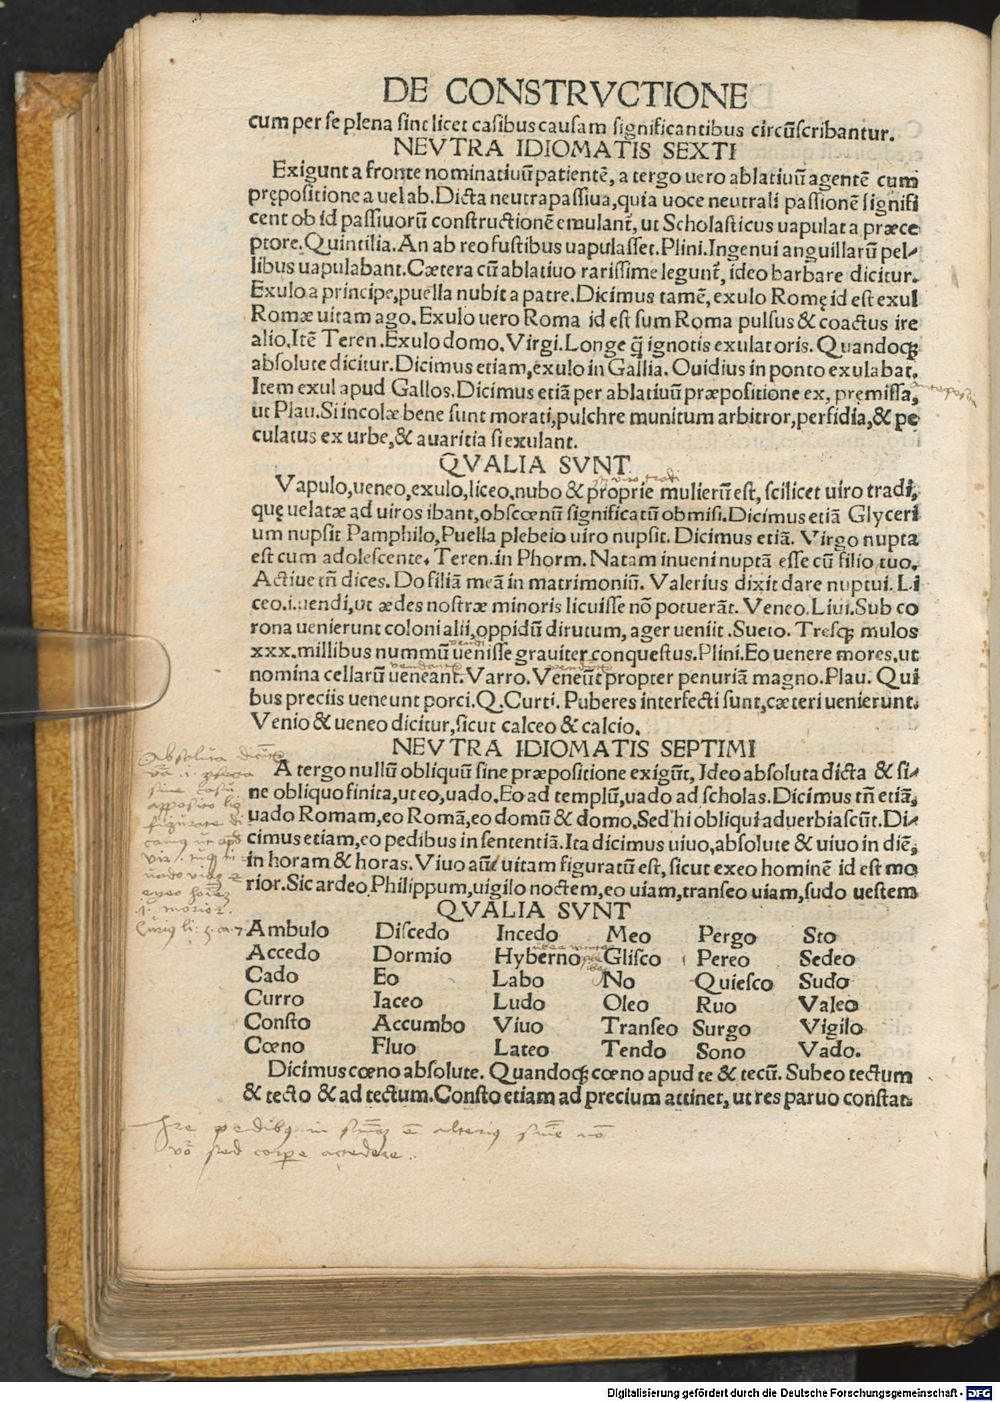 DE CONSTRVCTIONE
cum per se plena sint licet casibus causam significantibus circūscribantur.
NEVTRA IDIOMATIS SEXTI
Exigunt a fronte nominatiuū patientē, a tergo uero ablatiuū agentē cum
prępositione a uel ab. Dicta neutrapassiua, quia uoce neutrali passionē signifi
cent ob id passiuorū constructionē emulant̄, ut Scholasticus uapulat a præce
ptore. Quintilia. An ab reo fustibus uapulasset. Plini. Ingenui anguillarū pel/
libus uapulabant. Cætera cū ablatiuo rarissime legunt̄, ideo barbare dicitur.
Exulo a principe, puella nubit a patre. Dicimus tamē, exulo Romę id est exul
Romæ uitam ago. Exulo uero Roma id est sum Roma pulsus & coactus ire
alio. Itē Teren. Exulo domo. Virgi. Longe q̄ ignotis exulat oris. Quandoqꝫ
absolute dicitur. Dicimus etiam, exulo in Gallia. Ouidius in ponto exulabat.
Item exul apud Gallos. Dicimus etiā per ablatiuū præpositione ex, pręmissa,
ut Plau. Si incolæ bene sunt morati, pulchre munitum arbitror, perfidia, & pe
culatus ex urbe, & auaritia si exulant.
QVALIA SVNT
uiro tradi
Vapulo, ueneo, exulo, liceo, nubo & proprie mulierū est, scilicet uiro tradi,
quę uelatæ ad uiros ibant, obscœnū significatū obmisi. Dicimus etiā Glyceri
um nupsit Pamphilo, Puella plebeio uiro nupsit. Dicimus etiā. Virgo nupta
est cum adolescente. Teren. in Phorm. Natam inueni nuptā esse cū filio tuo.
Actiue tn̄ dices. Do filiā meā in matrimoniū. Valerius dixit dare nuptui. Li
ceo. i. uendi, ut ædes nostræ minoris licuisse nō potuerāt. Veneo. Liui. Sub co
rona uenierunt coloni alii, oppidū dirutum, ager ueniit. Sueto. Tresqꝫ mulos
xxx. millibus nummū uenisse grauiter conquestus. Plini. Eo uenere mores, ut
nomina cellarū ueneant. Varro. Veneūt propter penuriā magno. Plau. Qui
bus preciis ueneunt porci. Q. Curti. Puberes interfecti sunt, cæteri uenierunt.
Venio & ueneo dicitur, sicut calceo & calcio.
NEVTRA IDIOMATIS SEPTIMI
A tergo nullū obliquū sine præpositione exigūt, Ideo absoluta dicta & si/
ne obliquo finita, ut eo, uado. Eo ad templū, uado ad scholas. Dicimus tn̄ etiā,
uado Romam, eo Romā, eo domū & domo. Sed hi obliqui aduerbiascūt. Di/
cimus etiam, eo pedibus in sententiā. Ita dicimus uiuo, absolute & uiuo in diē,
in horam & horas. Viuo aūt uitam figuratū est, sicut exeo hominē id est mo
rior. Sic ardeo Philippum, uigilo noctem, eo uiam, transeo uiam, sudo uestem
QVALIA SVNT
Ambulo Discedo Incedo Meo Pergo Sto
Accedo Dormio Hyberno Glisco Pereo Sedeo
Cado Eo Labo No Quiesco Sudo
Curro Iaceo Ludo Oleo Ruo Valeo
Consto Accumbo Viuo Transeo Surgo Vigilo
Cœno Fluo Lateo Tendo Sono Vado.
Dicimus cœno absolute. Quandoqꝫ cœno apud te & tecū. Subeo tectum
& tecto & ad tectum. Consto etiam ad precium attinet, ut res paruo constat.
Digitalisierung gefördert durch die Deutsche Forschungsgemeinschaft - DFG